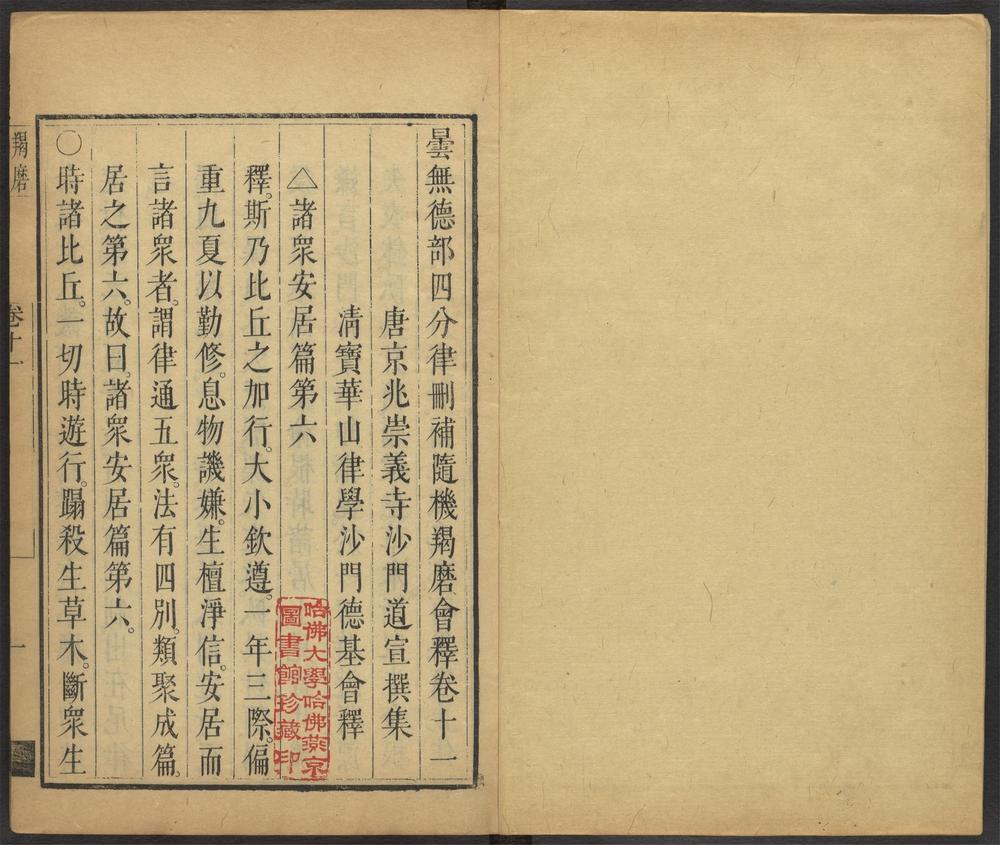 曇無德部四分律刪補隨機羯磨會釋卷十一
唐京兆崇義寺沙門道宣撰集
清寶華山律學沙門德基會釋
△諸衆安居篇第六
釋。斯乃比丘之加行。大小欽遵。一年三際。偏
重九夏以勤修。息物譏嫌。生檀淨信。安居而
言諸衆者。謂律通五衆。法有四別。類聚成篇。
居之第六。故曰。諸衆安居篇第六。
〇時諸比丘。一切時遊行。蹋殺生草木。斷衆生
羯磨
卷十一
一
哈佛大學哈佛燕京
圖書館珍藏印